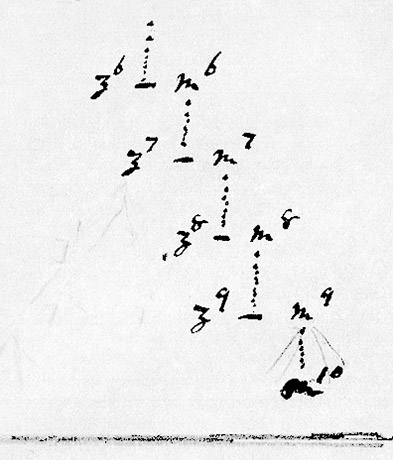 z⁶ m⁶
z⁷ m⁷
z⁸ m⁸
z⁹ m⁹
m¹⁰